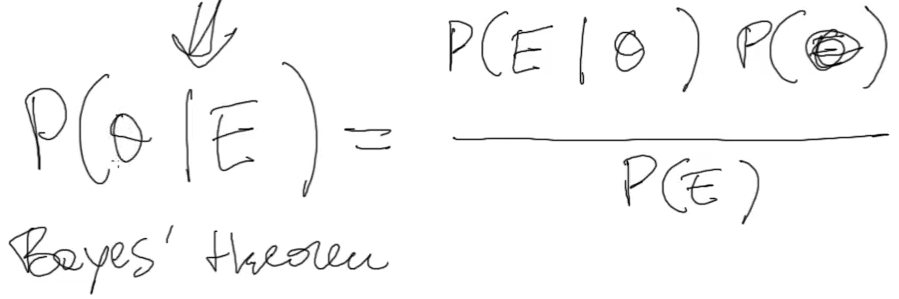 ⇓
P(θ|E) = P(E|θ) P(θ) / P(E)
Bayes' theorem